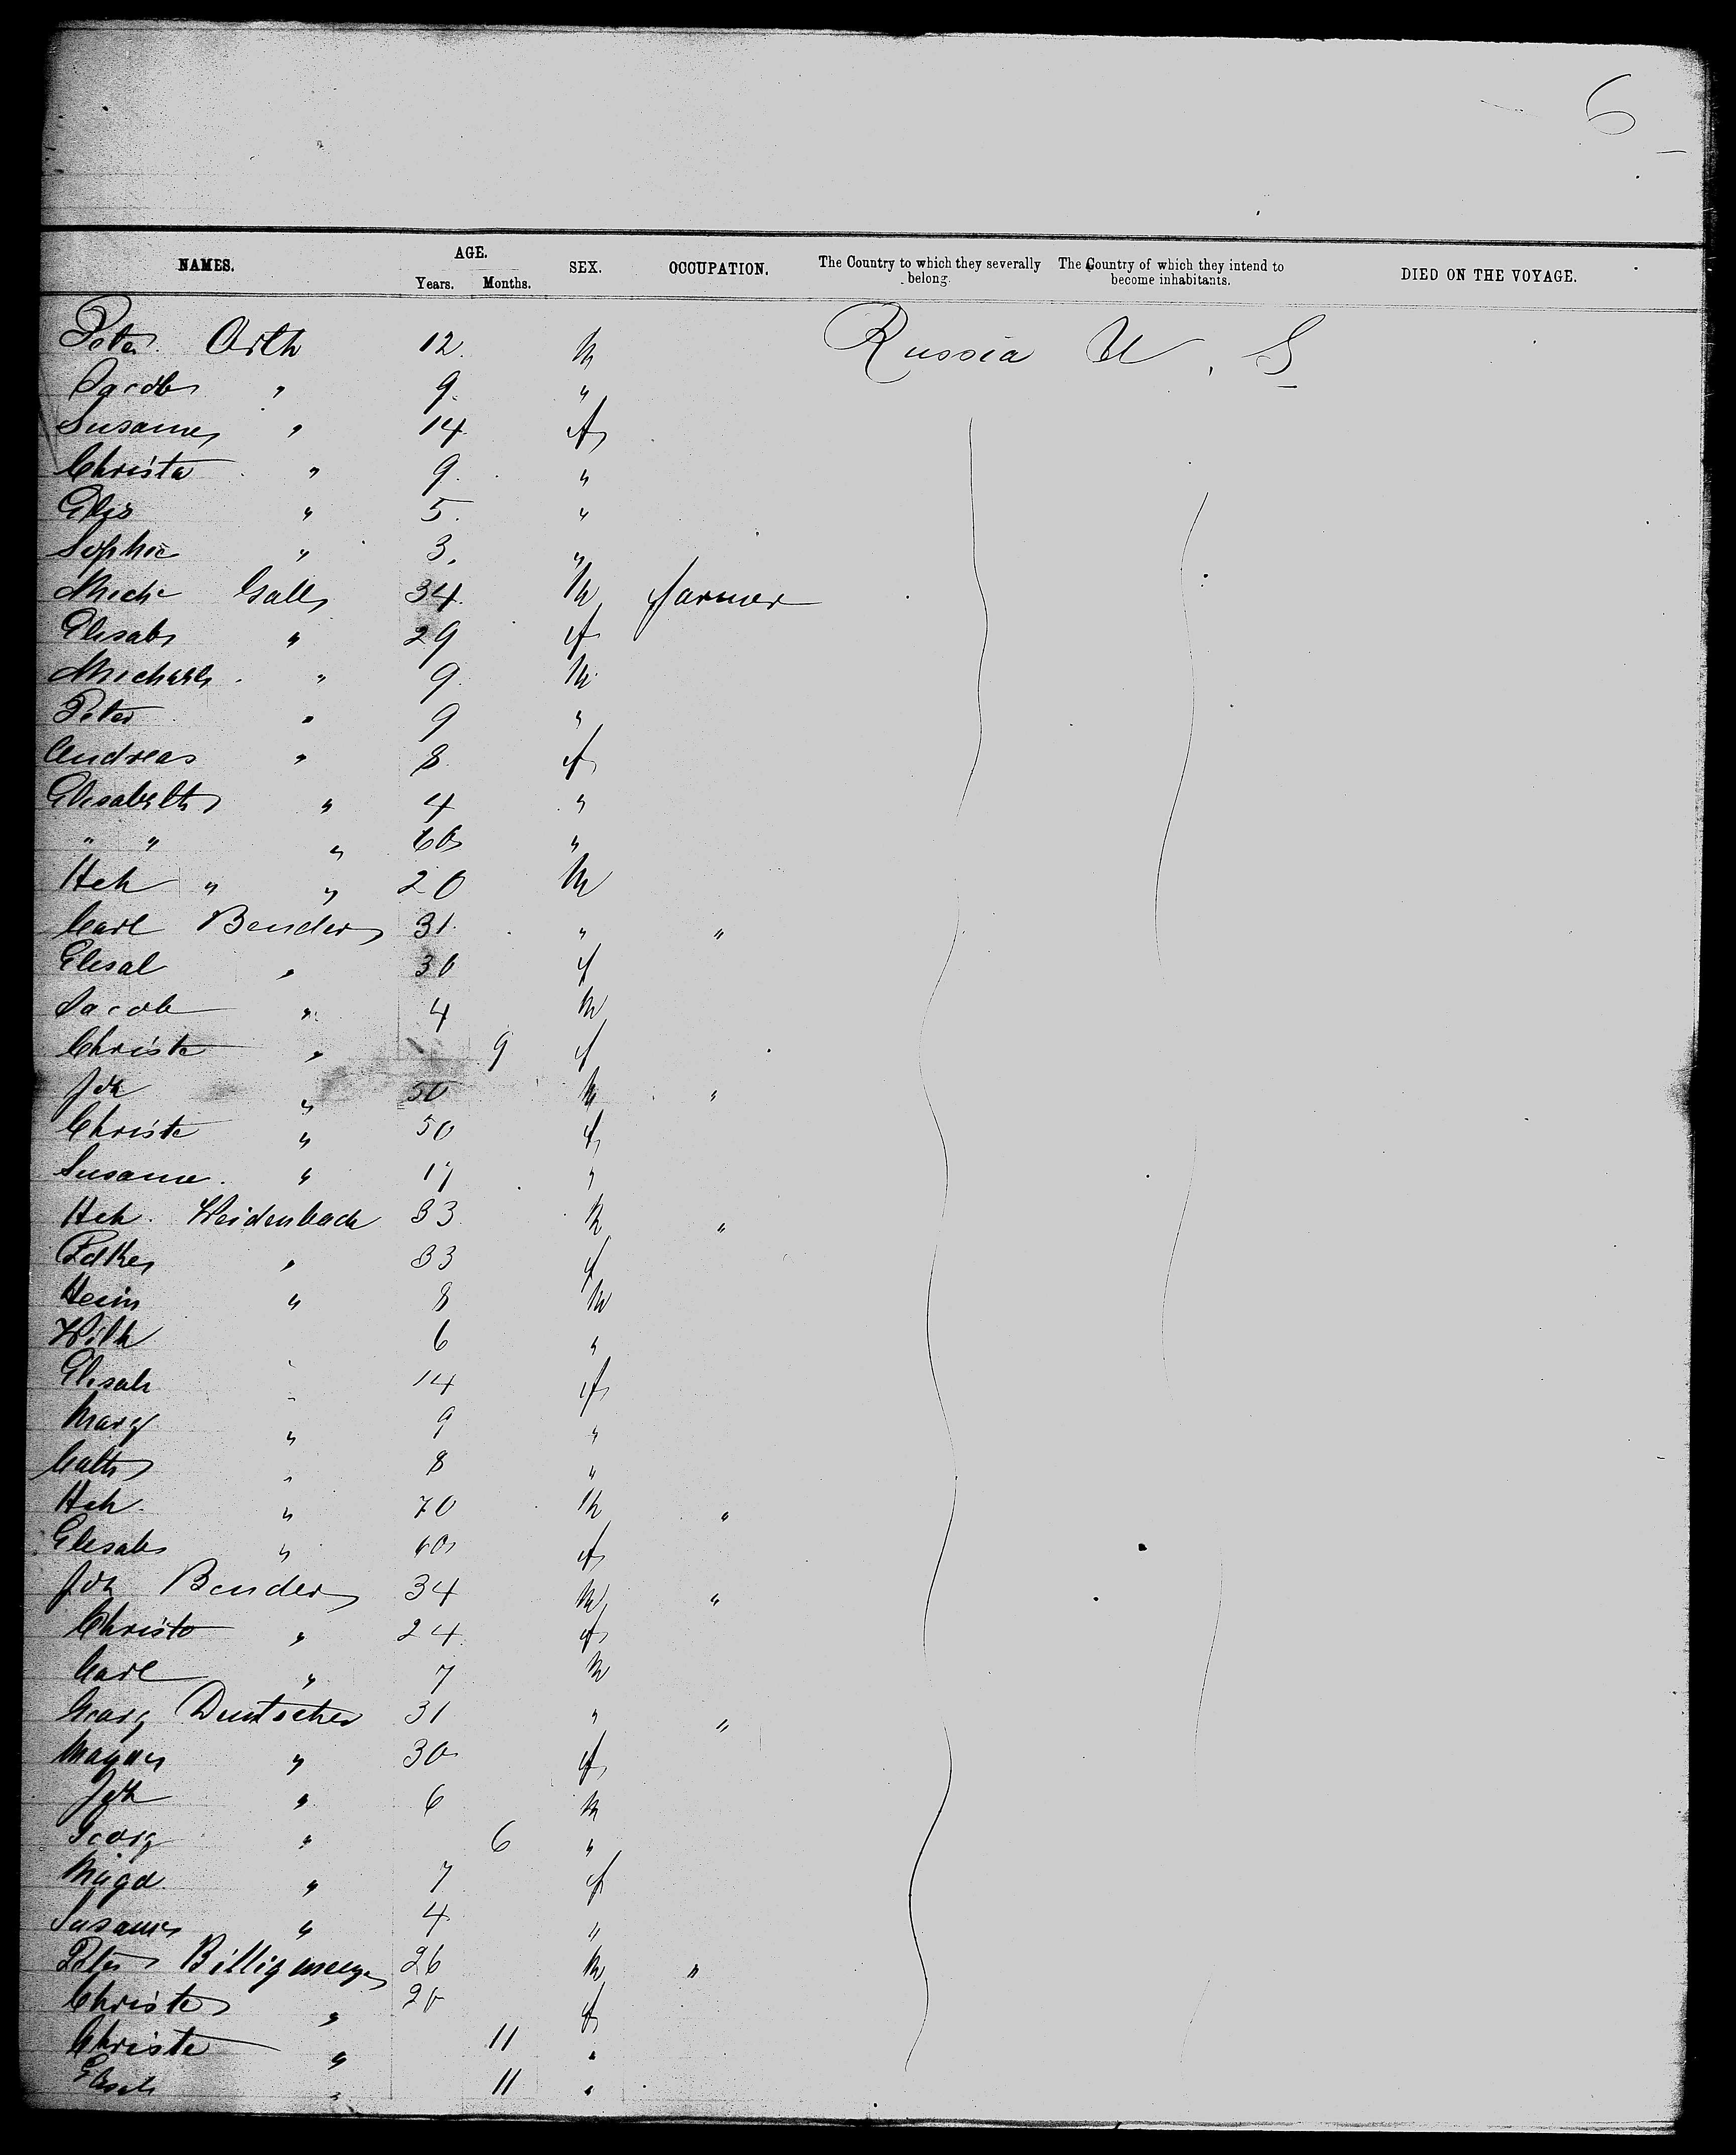 6
NAMES. AGE. Years. Months. SEX. OCCUPATION. The Country to which they severally belong. The Country of which they intend to become inhabitants. DIED ON THE VOYAGE.
Peter Orth 12 M Russia U. S
Jacob " 9 "
Susanne " 14 f
Christa " 9 "
Elis " 5 "
Sophie " 3 "
Mich Gall 34 M farmer
Elisab " 29 f
Michael " 9 M
Peter " 9 "
Andreas " 8 f
Elisabeth " 4 "
" " " 60 "
Hch " " 20 M
Carl Bender 31 " "
Elisab " 30 f
Jacob " 4 M
Christe " 9 f
Joh " 50 M "
Christe " 50 f
Susanne " 17 "
Hch Weidenbach 33 M "
" 33 f
Hein " 8 M
Wilh 6 "
Elisab " 14 f
Marg " 9 "
Cath " 8 "
Hch " 70 M "
Elisab " 60 f
Joh Bender 34 M "
Christo " 24 f
Carl " 7 M
Georg Deutscher 31 " "
" 30 f
Joh " 6 M
Georg " 6 "
Magd " 7 f
Susanne " 4 "
Peter Billigmeyer 26 M "
Christe " 20 f
Christe " 11 "
Elisab " 11 "